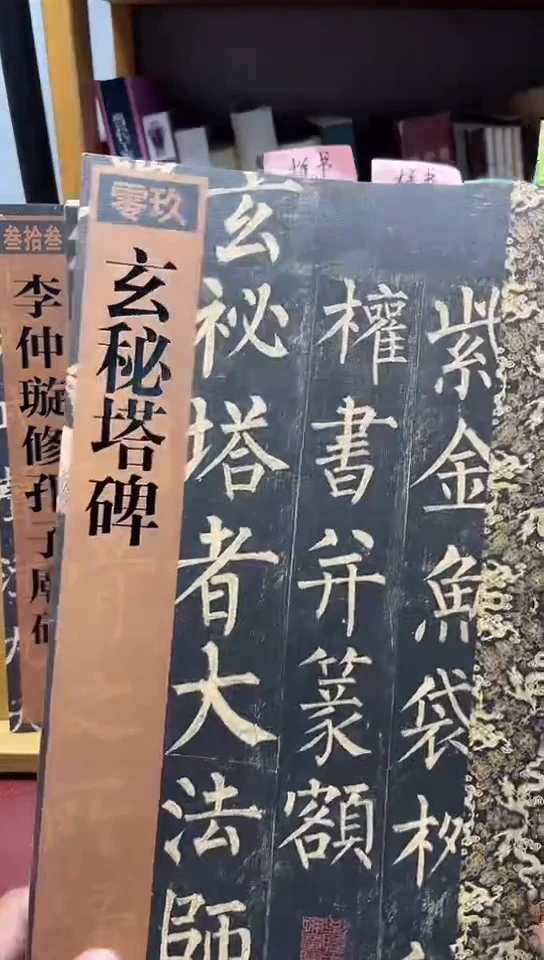 零玖
玄秘塔碑
紫金魚袋
權書并篆額
玄祕塔者大法師
叁拾叁
李仲璇修孔子廟碑